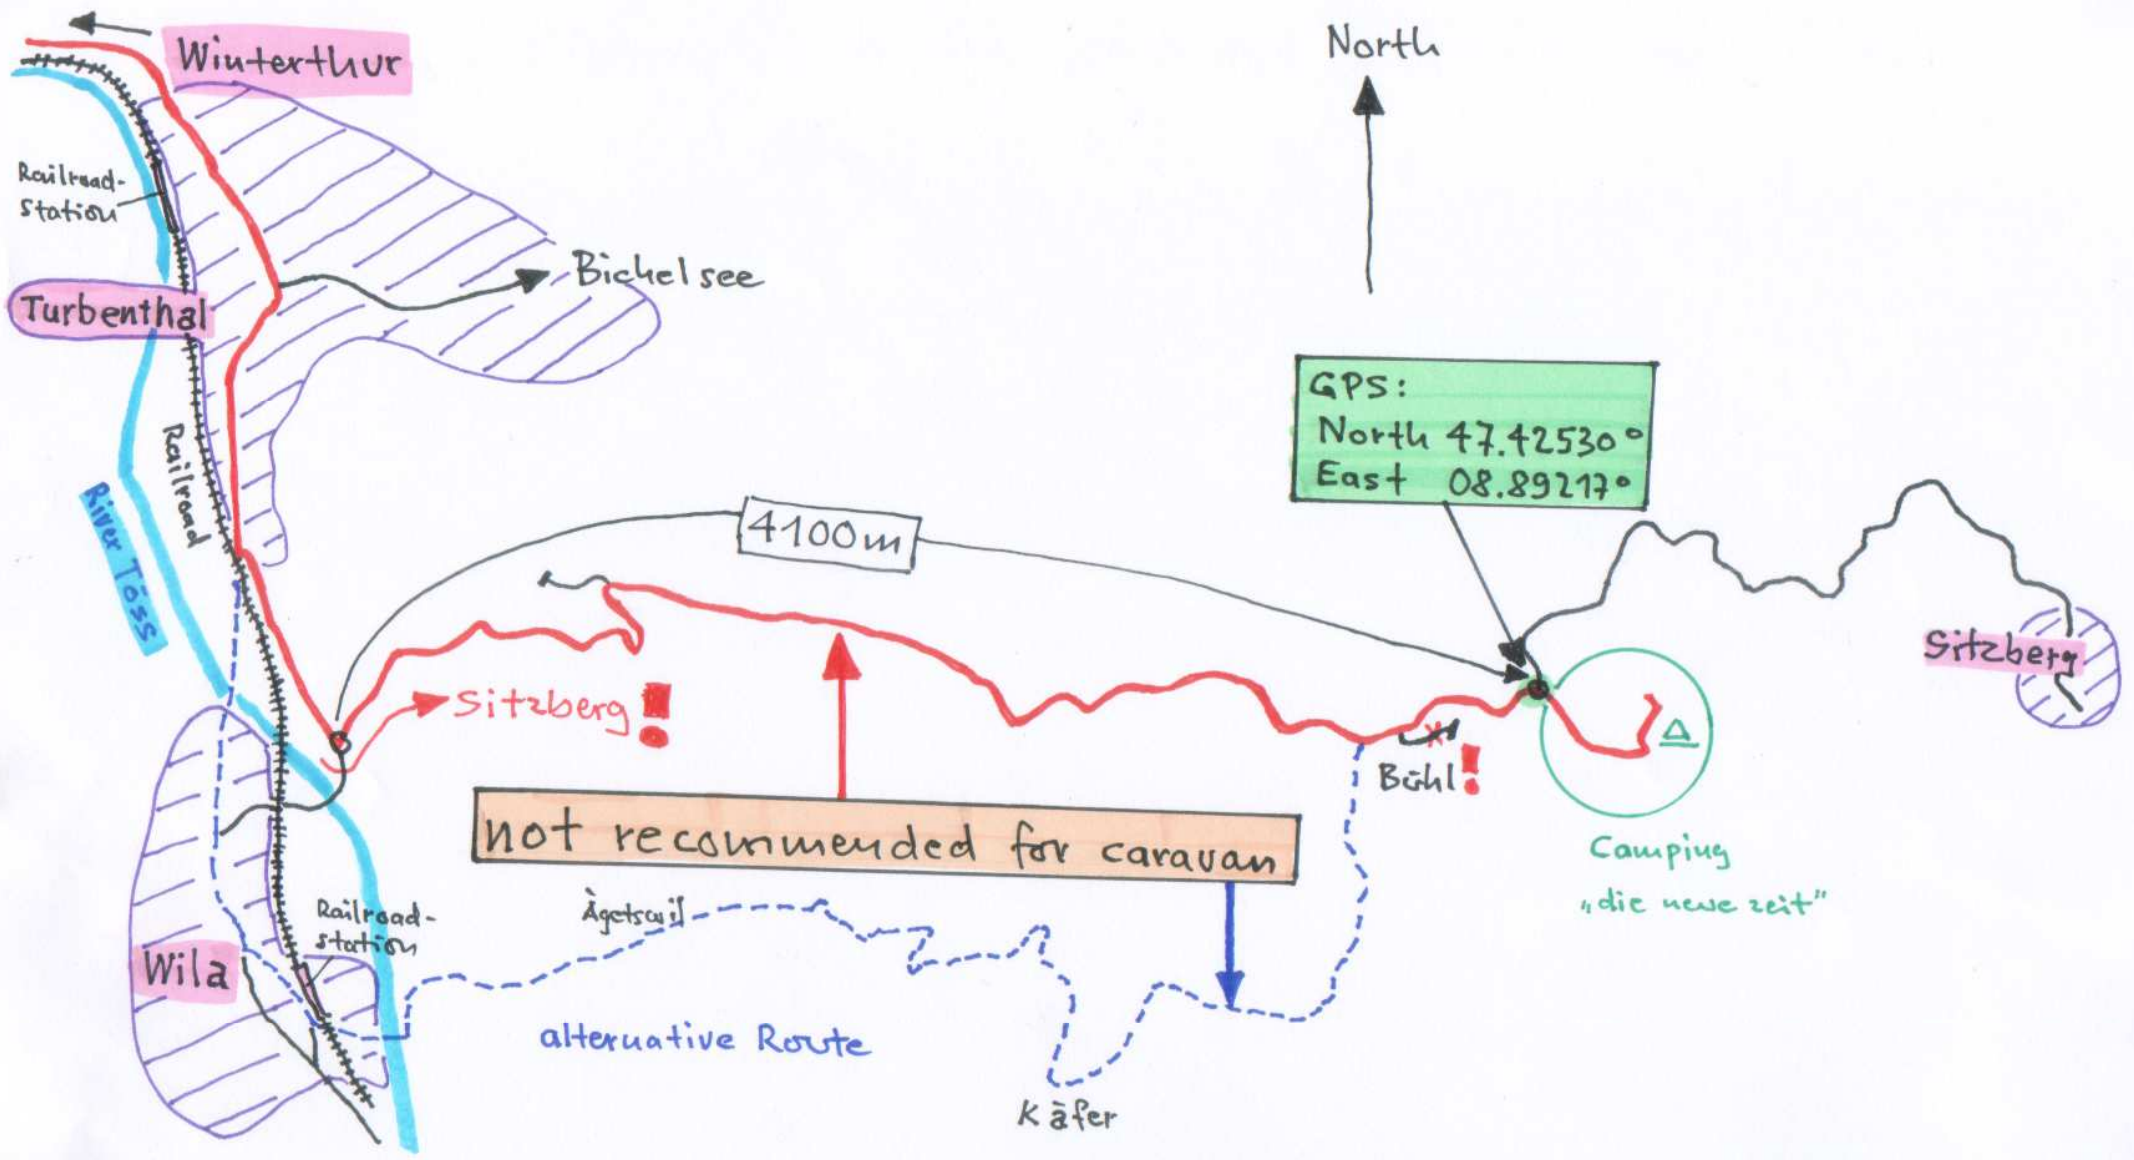 Winterthur
North
Railroad-
station
Bichelsee
Turbenthal
GPS:
North 47.42530°
East 08.89217°
Railroad
River Töss
4100m
Sitzberg
Sitzberg!
Bühl!
not recommended for caravan
Camping
„die neue zeit"
Railroad-
station
Ägetswil
Wila
alternative Route
Käfer